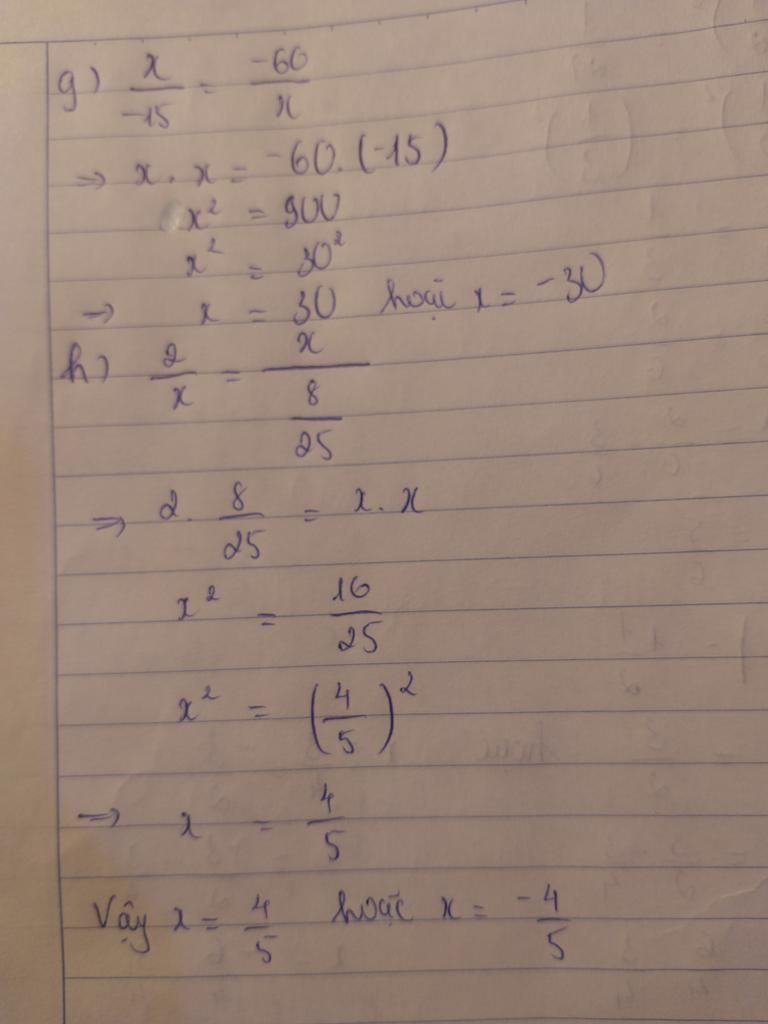 g) x/-15 = -60/x
=> x . x = -60.(-15)
x² = 900
x² = 30²
-> x = 30 hoặc x = -30
h) 2/x = x/(8/25)
=> 2 . 8/25 = x . x
x² = 16/25
x² = (4/5)²
=> x = 4/5
Vậy x = 4/5 hoặc x = -4/5